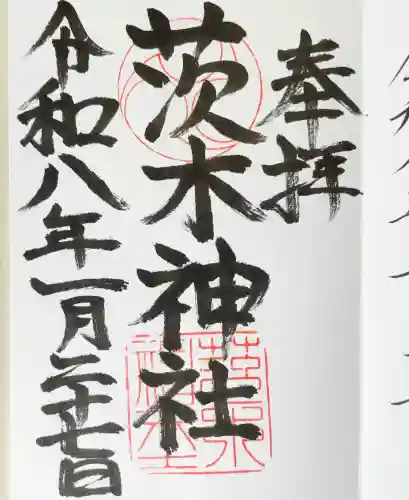 奉拝
茨木神社
令和八年一月二十七日